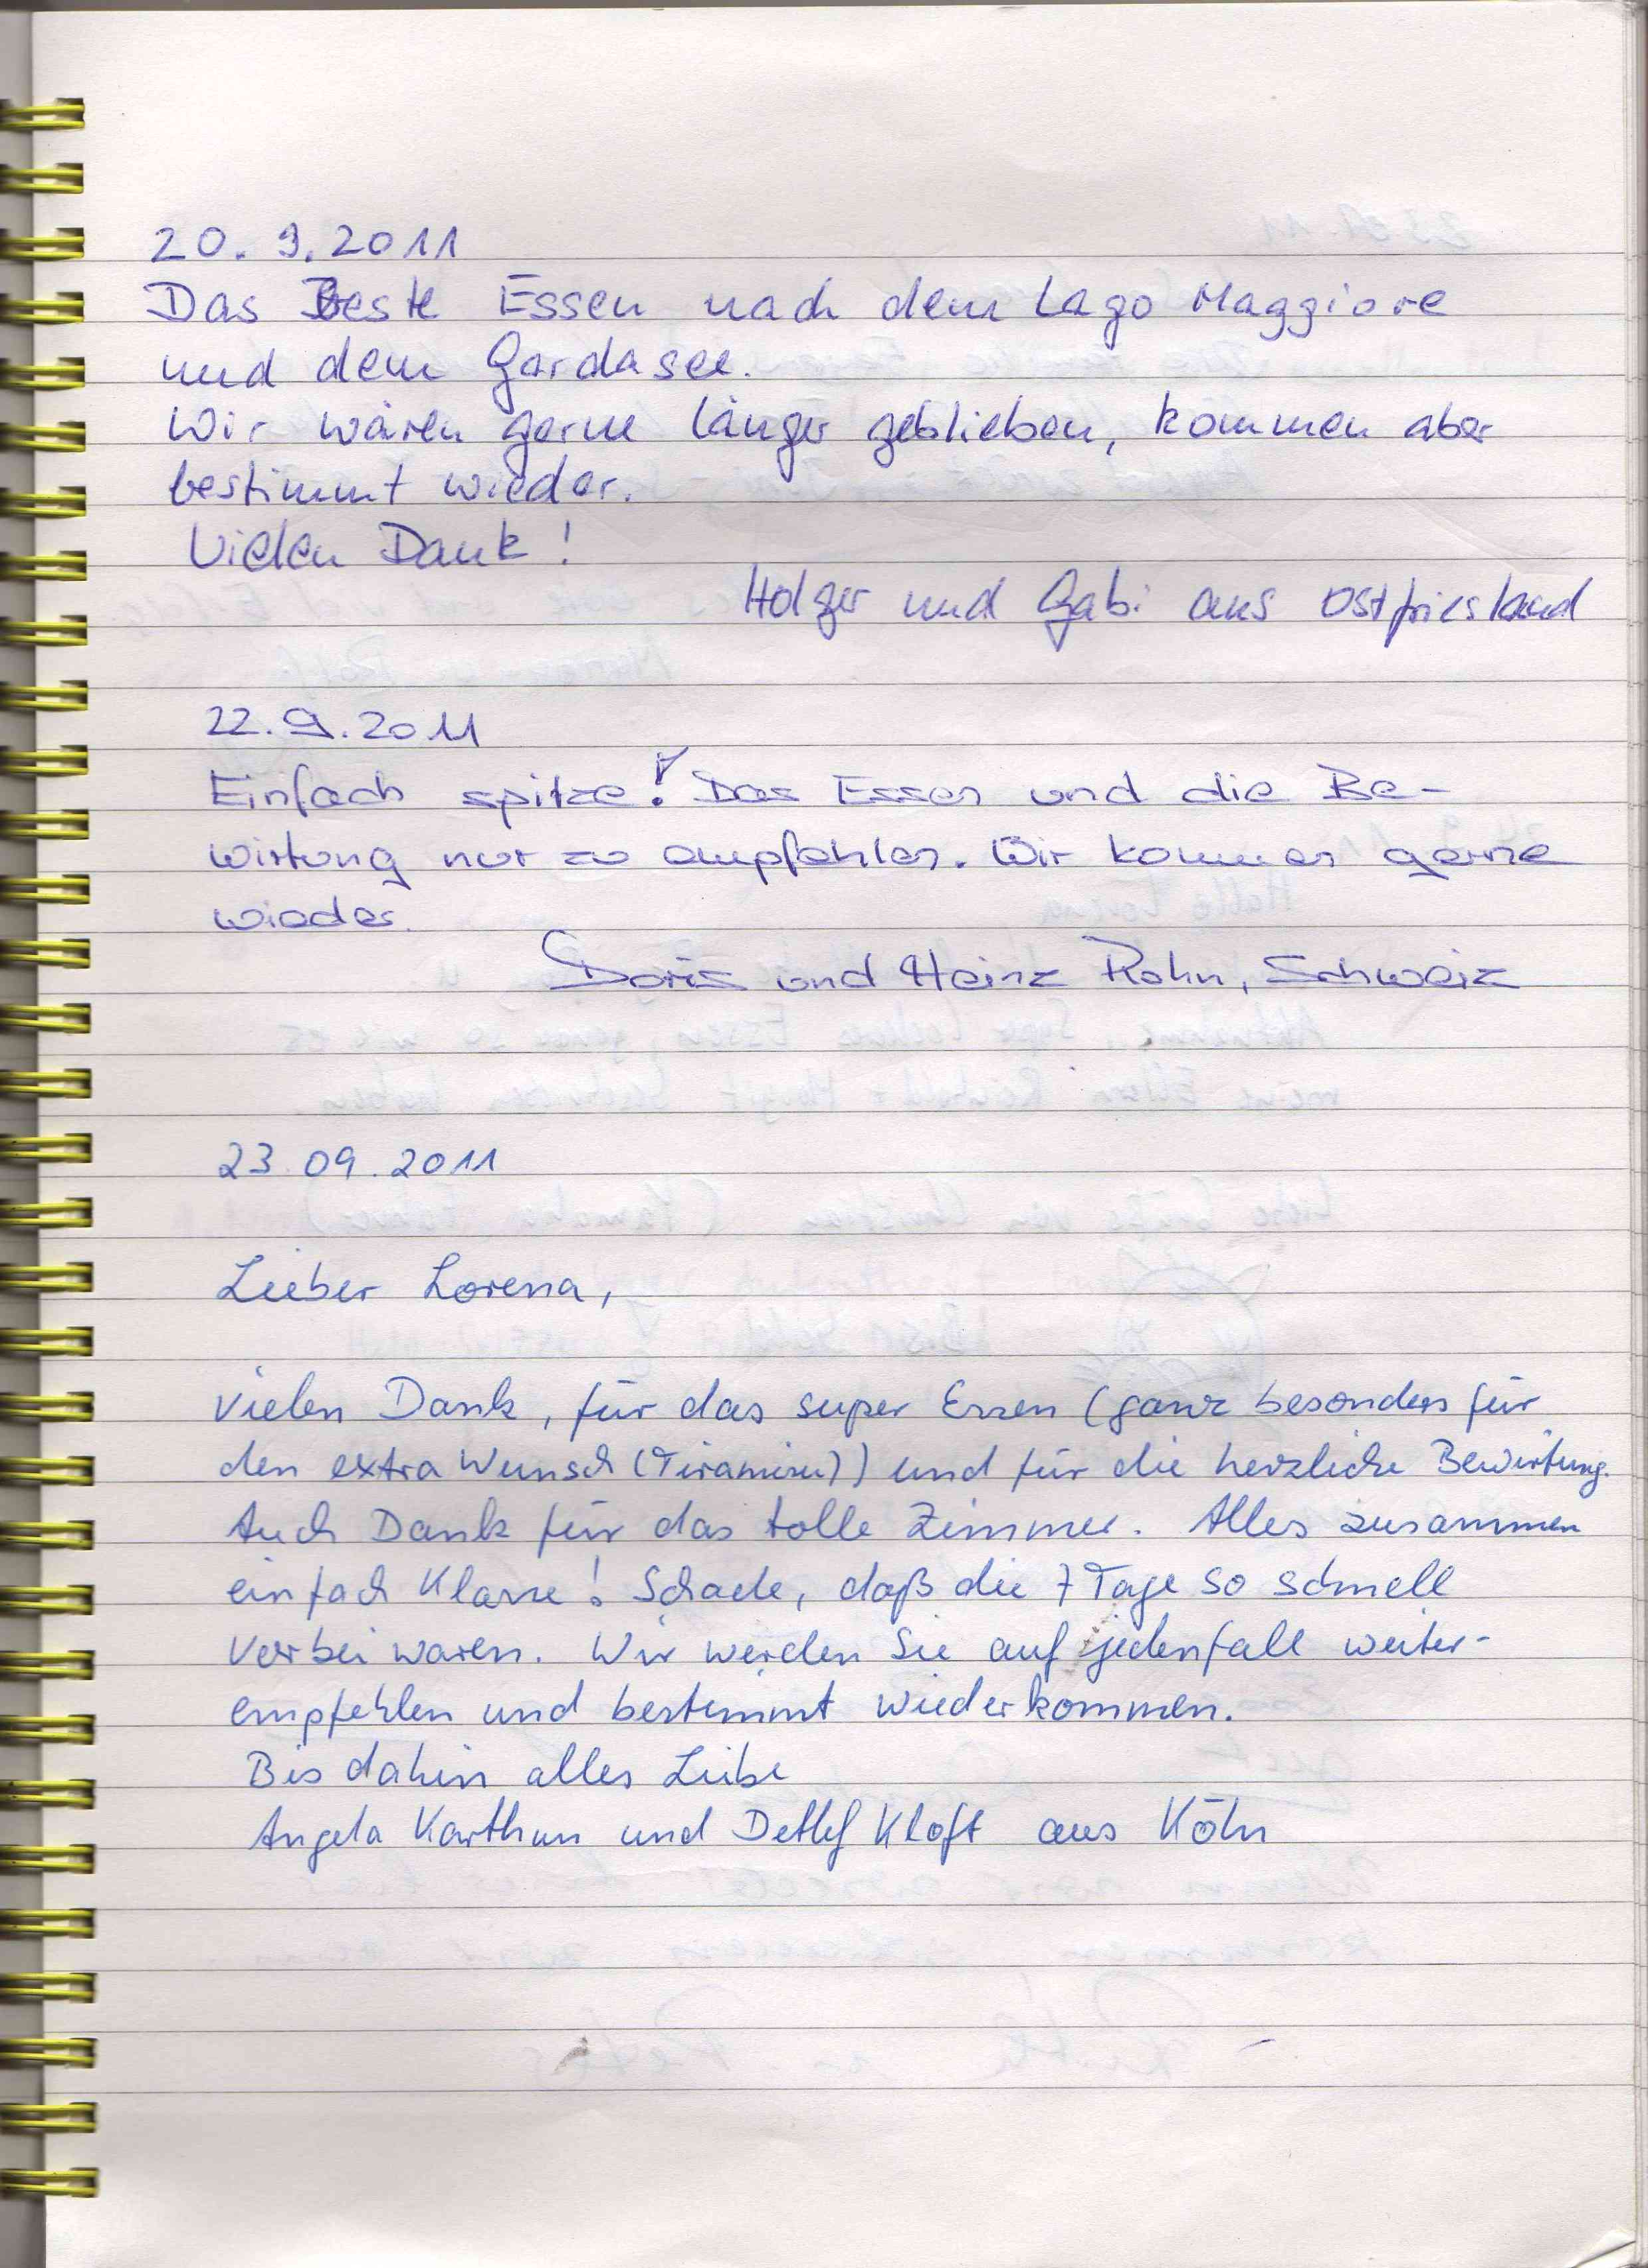 20. 9. 2011
Das Beste Essen nach dem Lago Maggiore
und dem Gardasee.
Wir wären gerne länger geblieben, kommen aber
bestimmt wieder.
Vielen Dank!
Holger und Gabi aus Ostfriesland
22. 9. 2011
Einfach spitze! Das Essen und die Be-
wirtung nur zu empfehlen. Wir kommen gerne
wieder.
Doris und Heinz Rohn, Schweiz
23.09.2011
Lieber Lorena,
vielen Dank, für das super Essen (ganz besonders für
den extra Wunsch (Tiramisu)) und für die herzliche Bewirtung.
Auch Dank für das tolle Zimmer. Alles zusammen
einfach Klasse! Schade, daß die 7 Tage so schnell
vorbei waren. Wir werden Sie auf jedenfall weiter-
empfehlen und bestimmt wiederkommen.
Bis dahin alles Liebe
Angela Karthun und Detlef Kloft aus Köln